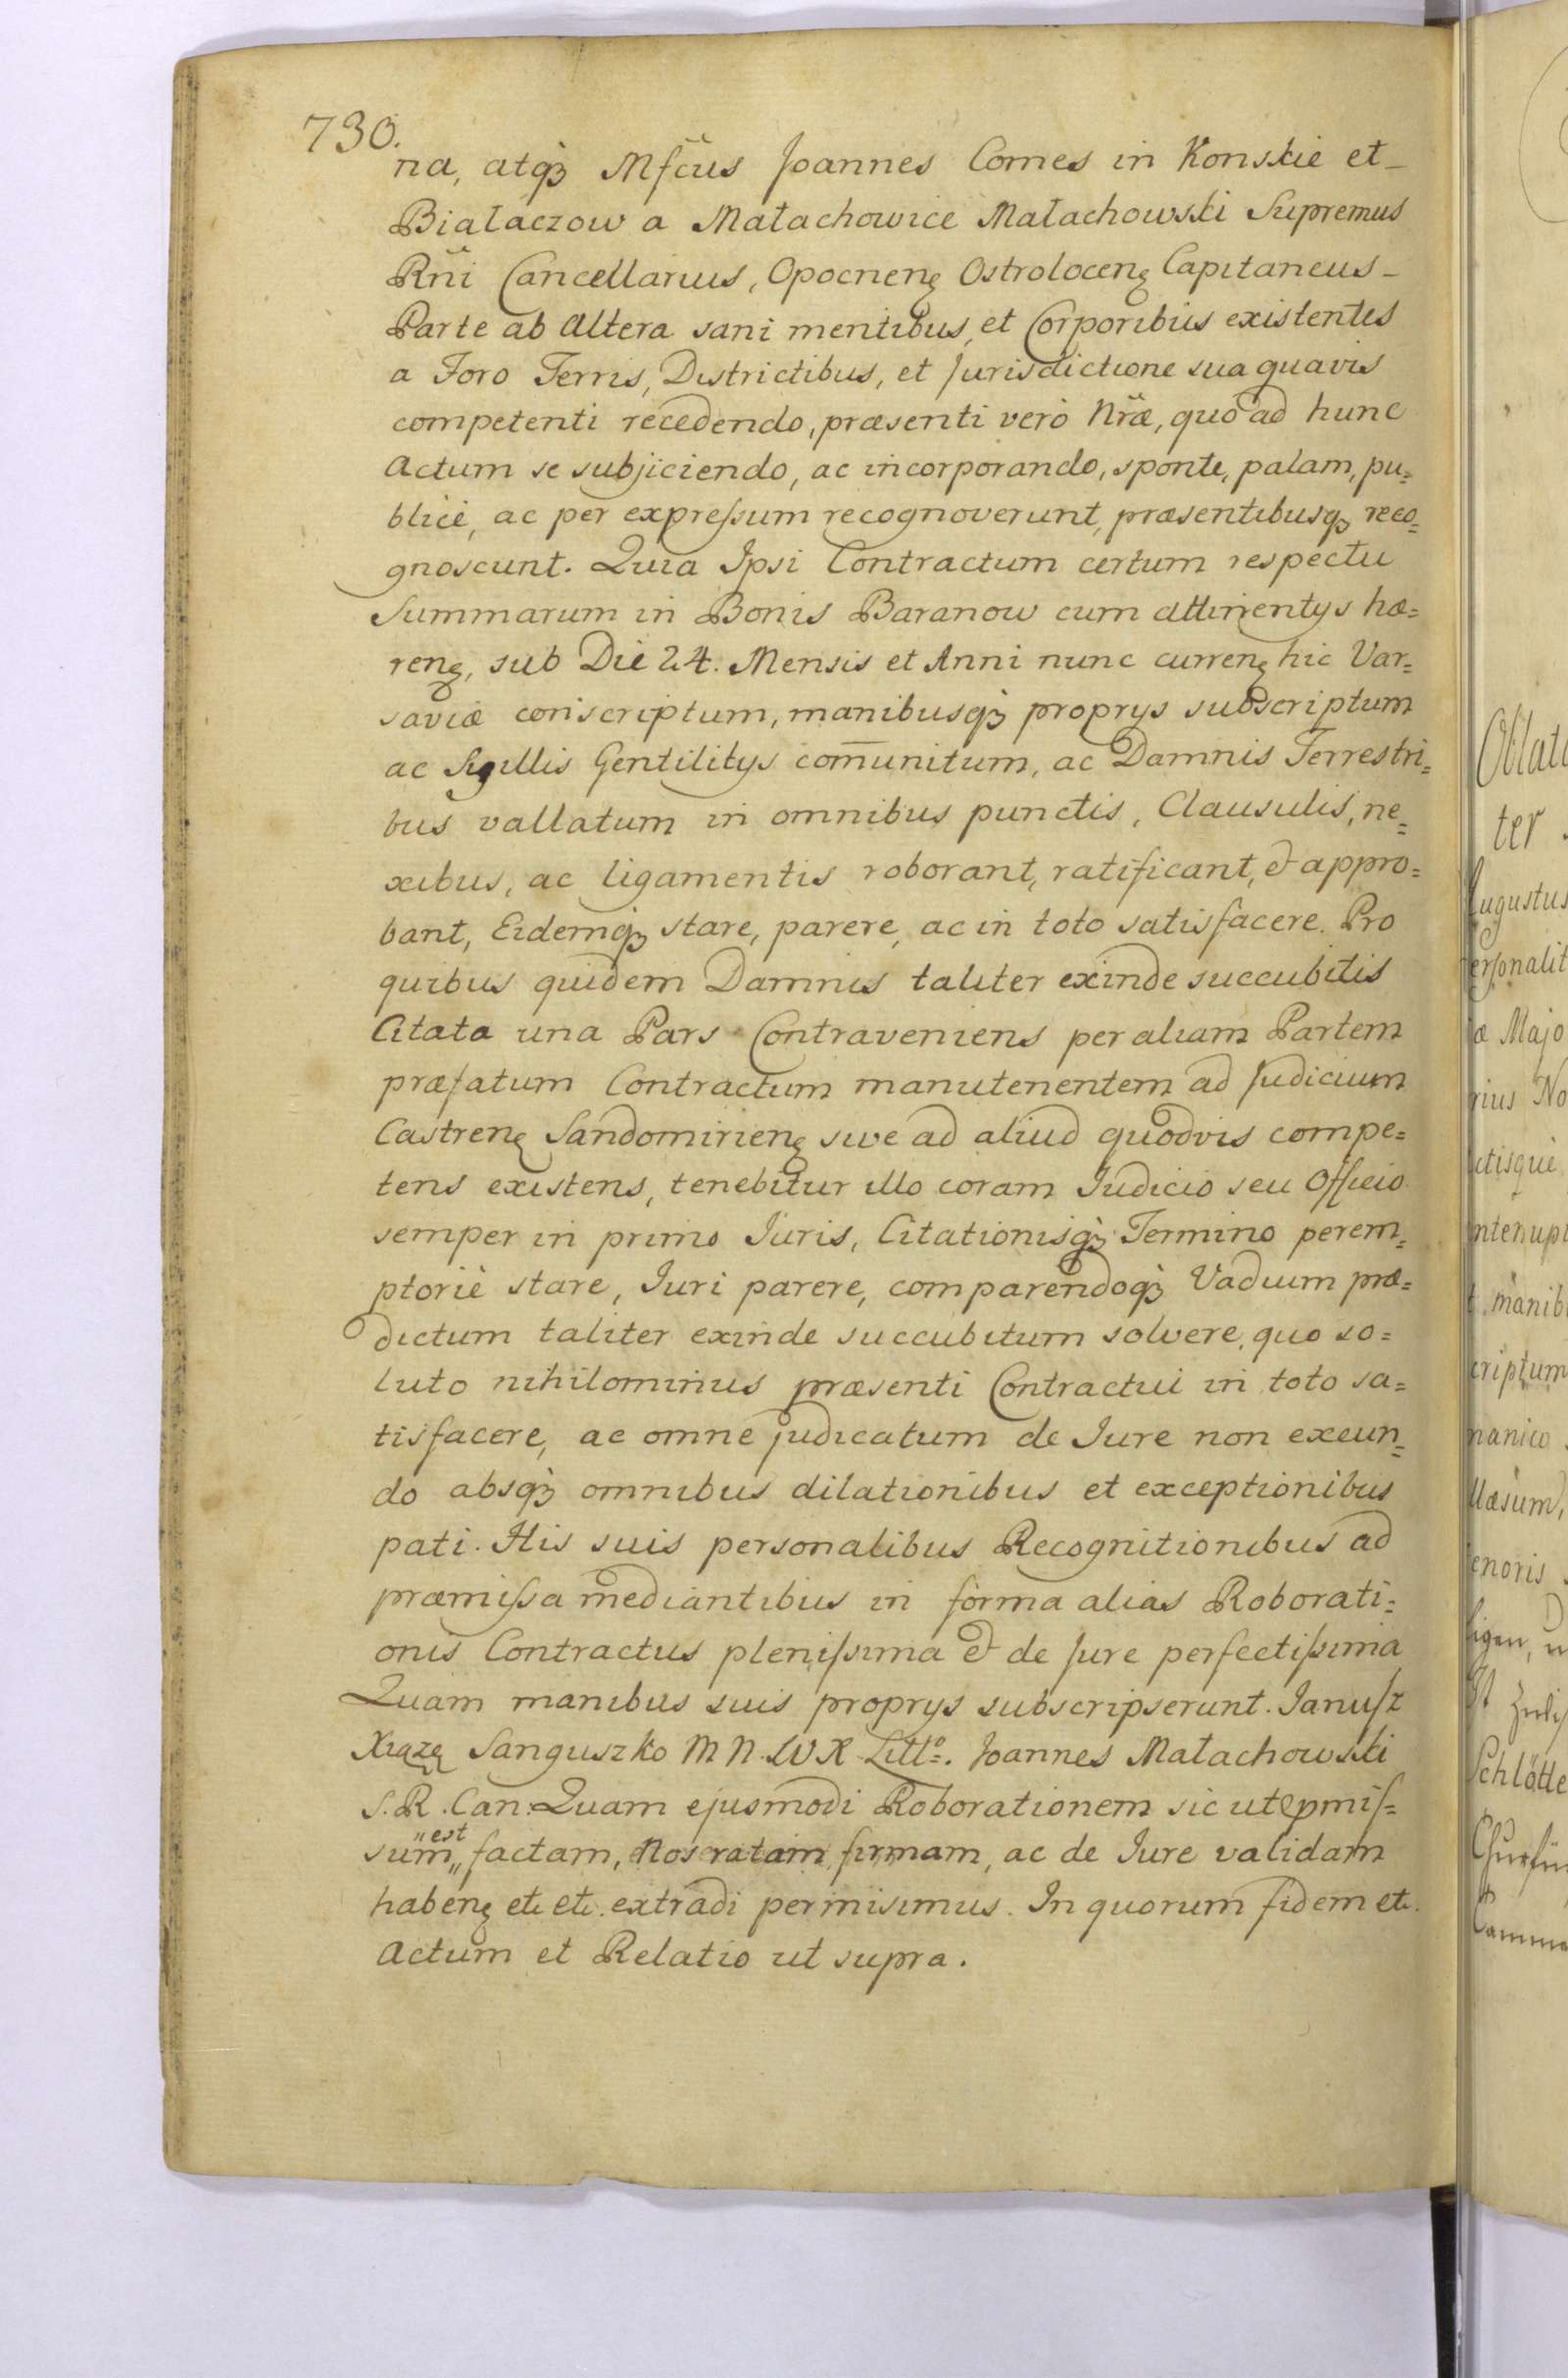 730.
na, atqꝫ Mfcus Joannes Comes in Konskie et
Białaczow a Małachowice Małachowski Supremus
Rñi Cancellarius, Opocneñ Ostroloceñ Capitaneus
Parte ab altera sani mentibus, et Corporibus existentes
a Foro Terris, Districtibus, et Jurisdictione sua quavis
competenti recedendo, præsenti verò Nræ, quo ad hunc
actum se subjiciendo, ac incorporando, sponte, palam, pu=
blicè, ac per expreſsum recognoverunt, præsentibusqꝫ reco=
gnoscunt. Quia Ipsi Contractum certum respectu
Summarum in Bonis Baranow cum attinentys hæ=
reñ, sub Die 24. Mensis et Anni nunc curreñ hic Var=
saviæ conscriptum, manibusqꝫ proprys subscriptum
ac Sigillis Gentilitys com̄unitum, ac Damnis Terrestri=
bus vallatum in omnibus punctis, Clausulis, ne=
xibus, ac ligamentis roborant, ratificant, & appro=
bant, Eidemqꝫ stare, parere, ac in toto satisfacere. Pro
quibus quidem Damnis taliter exinde succubitis
Citata una Pars Contraveniens per aliam Partem
præfatum Contractum manutenentem ad Judicium
Castreñ Sandomirieñ sive ad aliud quodvis compe=
tens existens, tenebitur illo coram Iudicio seu Officio
semper in primo Iuris, Citationisqꝫ Termino perem=
ptoriè stare, Iuri parere, comparendoqꝫ Vadium præ=
dictum taliter exinde succubitum solvere, quo so=
luto nihilominus præsenti Contractui in toto sa=
tisfacere, ac omne judicatum de Iure non exeun=
do absqꝫ omnibus dilationibus et exceptionibus
pati. His suis personalibus Recognitionibus ad
præmiſsa mediantibus in forma alias Roborati=
onis Contractus pleniſsima & de Jure perfectiſsima
Quam manibus suis proprys subscripserunt. Ianuſz
Xiąże Sanguszko M N. W X Litto. Joannes Małachowski
S. R. Can: Quam ejusmodi Roborationem sic ut pmiſ=
sum est factam, Nos ratam firmam, ac de Iure validam
habeñ etc etc. extradi permisimus. In quorum fidem etc.
Actum et Relatio ut supra.
Oblat
ter
ugustus
ersonalit
æ Majo
rius No
ctisque
nterupt
manib
criptum
manico
læsum,
enoris
Schlötte